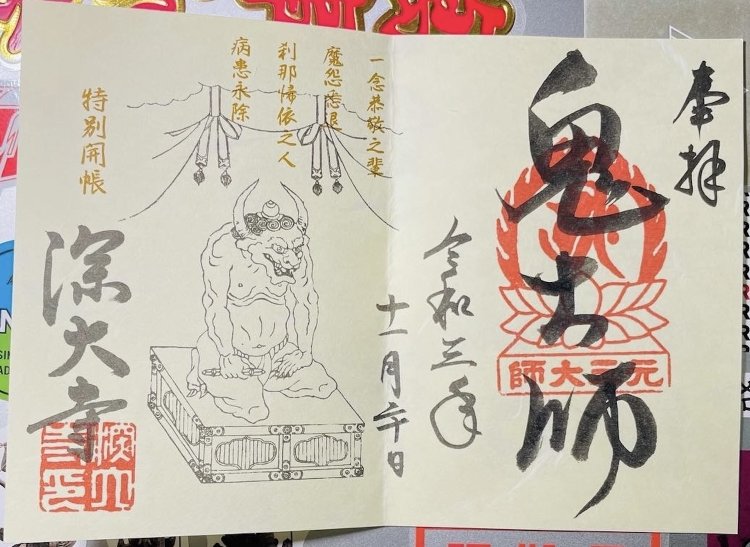 奉拝
鬼大師
元三大師
令和三年
十一月二十日
一念恭敬之輩
魔怨悉退
刹那帰依之人
病患永除
特別開帳
深大寺